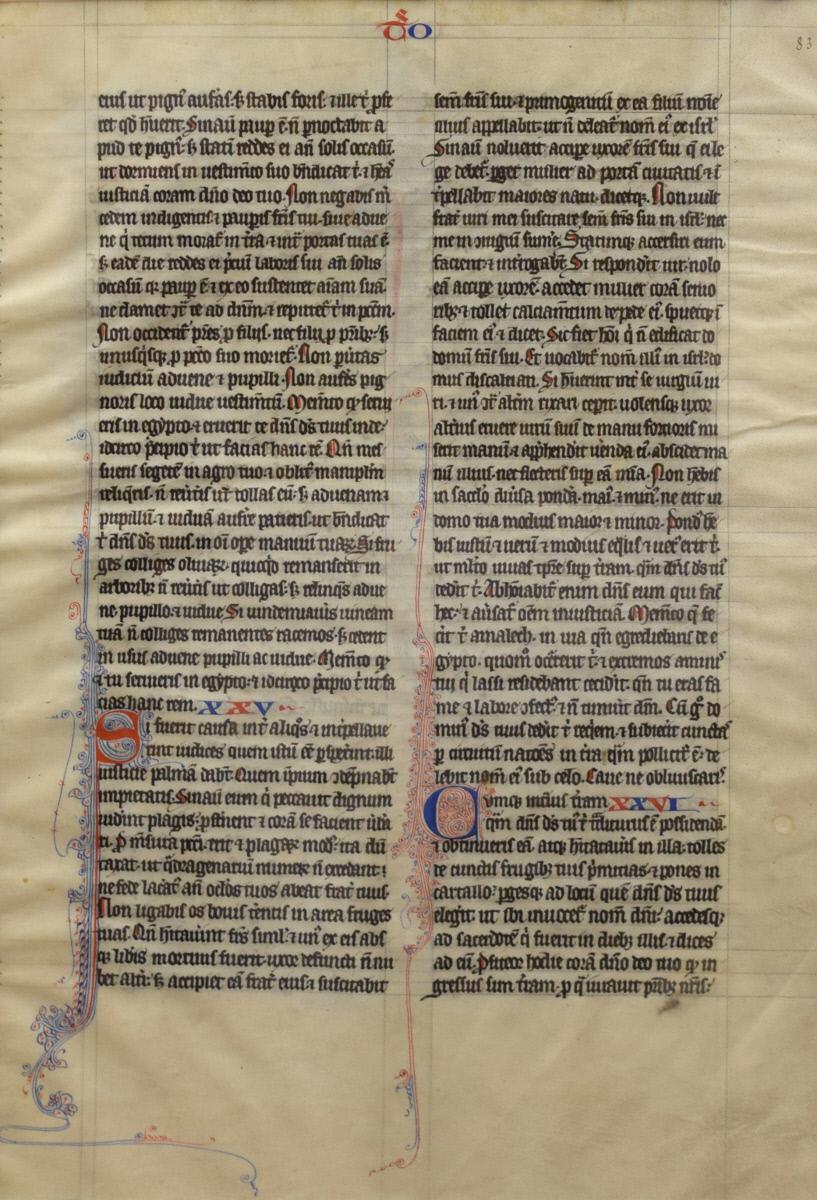 DO
83
eius ut pignꝰ aufas. s; stabis foris. ⁊ ille t̄ ꝓfe
ret qđ h̄uerit. Sinaūt pauꝑ ē n̄ ꝑnoctabit a
pud te pignꝰ s; statim reddes ei an̄ solis occasū.
ut dormiens in uestimēto suo bn̄dicat t̄. ⁊ hēas
iusticiā coram dn̄o deo tuo. Non negabis m̄
cedem indigentis ⁊ pauꝑis fr̄is tui. siue adue
ne q̄ tecum moratr̄ in tr̄a ⁊ intͣ portas tuas ē
s; eadē die reddes ei p̄ciū laboris sui an̄ solis
occasū q̄ pauꝑ ē ⁊ ex eo sustentet aīam suā.
ne clamet ꝯtͣ te ad dn̄m. ⁊ reputetr̄ t̄ in pccm̄.
Non occident̄ pr̄es ꝓ filijs. nec filij ꝓ pr̄ibꝫ. s;
unusq̄sqꝫ ꝓ pccō suo moriet̄. Non ꝑuertas
iudiciū aduene ⁊ pupilli. Non auferes pig
noris loco uidue uestimentū. Mem̄to qꝫ serui
eris in egypto. ⁊ eruerit te dn̄s d̄s tuus inde.
idcirco p̄cipio t̄ ut facias hanc rē. Qn̄ mes
sueris segetē in agro tuo. ⁊ oblitꝰ maniplm̄
reliq̄ris. n̄ reūtis ut tollas eū. s; aduenam ⁊
pupillū. ⁊ uiduā auferre patieris. ut bn̄dicat
t̄ dn̄s d̄s tuus. in oī oꝑe manuū tuaꝝ. Si fru
ges colliges oliuaꝝ. quicq̄d remanserit in
arboribꝫ n̄ reūtis ut colligas. s; relinq̄s adue
ne. pupillo. ⁊ uidue. Si uindemiaūis uineam
tuā n̄ colliges remanentes racemos. s; cedent
in usus aduene pupilli ac uidue. Mem̄to qꝫ
⁊ tu seruieris in egypto. ⁊ idcirco p̄cipio t̄ ut fa
cias hanc rem. XXV
Si fuerit causa intͣ aliq̄s ⁊ int̄pellaue
rint iudices quem iustū eē ꝑspexerint. illi
iusticie palmā dabūt. Quem īpium ꝯdēpnabūt
impietatis. Sinaūt eum q̄ peccauit dignum
uiderint plagis. ꝓsternent ⁊ corā se facient ūbera
ri. P̄ mēsura pccī. erit ⁊ plagaꝝ modꝰ. ita dū
taxat. ut q̄dragenariū numeꝝ n̄ excedant.
ne fede lacerat̄ an̄ oclōs tuos abeat frater tuus.
Non ligabis os bouis terentis in area fruges
tuas. Qn̄ hītauerint fr̄s siml̄. ⁊ unꝰ ex eis absꝫ
qꝫ libis mortuus fuerit. uxor defuncti n̄ nu
bet alt̄i. s; accipiet eā frater eius. ⁊ suscitabit
sem̄ fr̄is sui. ⁊ primogenitū ex ea filiū noīe
illius appellabit. ut n̄ deleat̄ nom̄ eiꝰ ex isrl̄.
Sinaūt noluerit acciꝑe uxorē fr̄is sui q̄ ei le
ge debet̄. ꝑget mulier ad portā ciuitatis ⁊ ī
t̄pellabit maiores natu. dicetqꝫ. Non uult
frater uiri mei suscitare sem̄ fr̄is sui in isrl̄. nec
me in ꝯiugiū sumē. Statimqꝫ accersiri eum
facient. ⁊ int̄rogabūt. Si respond̄it ut nolo
eā acciꝑe uxorē. accedet mulier corā senio
ribꝫ. ⁊ tollet calciamtum de pede eiꝰ. spuetqꝫ ī
faciem eiꝰ. ⁊ dicet. Sic fiet hōi q̄ n̄ edificat do
domū fr̄is sui. Et uocabit̄ nom̄ illiꝰ in isrl̄. do
mus discalciati. Si h̄uerint int̄ se iurgiū ui
ri. ⁊ unꝰ ꝯtͣ altm̄ rixari cepit. uolensqꝫ uxor
altiꝰus eruere uirū suū de manu fortioris mi
serit manū. ⁊ app̄hendit ūenda eiꝰ. abscides ma
nū illius. nec flecteris suꝑ eā mīa. Non hēbis
in sacclo diūsa pondā. maiꝰ. ⁊ minꝰ. ne erit in
domo tua modius maior ⁊ minor. Pondꝰ hē
bis iustū. ⁊ uerū. ⁊ modius eq̄lis ⁊ uerꝰ erit t̄.
ut ml̄to uiuas tꝑre suꝑ tr̄am. qm̄ dn̄s d̄s tuꝰ
dedit t̄. Abhoīabit̄ enim dn̄s eum qui facit
hec. ⁊ aūsat̄ oēm iniusticiā. Mem̄to q̄ fe
cit t̄ amalech. in uia qn̄ egrediebaris de e
gypto. quom̄ occ̄rerit t̄. ⁊ extremos agminꝰ
tui q̄ lassi residebant cecidit. qn̄ tu eras fa
me ⁊ labore ꝯfectꝰ. ⁊ n̄ timuit dm̄. Cū gͦ do
minꝰ d̄s tuus dedit t̄ reqꝫem. ⁊ subiecit cunctas
ꝑ circuitū natōes in tr̄a q̄m pollicitꝰ ē. de
lebit nom̄ eiꝰ sub celo. Caue ne obliuiscaris.
Cumqꝫ int̄uis tr̄am XXVI
q̄m dn̄s d̄s tuꝰ t̄ tͣditurus ē possidendā.
⁊ obtinueris eā. atqꝫ hītaueris in illa. tolles
de cunctis frugibꝫ tuis p̄mitias ⁊ pones in
cartallo. ꝑgesqꝫ ad locū quē dn̄s d̄s tuus
elegit. ut ibi inuocet̄ nom̄ eiꝰ. accedesqꝫ
ad sacerdotē q̄ fuerit in diebꝫ illis. ⁊ dices
ad eū. P̄fiteor hodie corā dn̄o deo tuo qꝫ in
gressus sum tr̄am. ꝓ q̄ iurauit pr̄ibꝫ nr̄is.